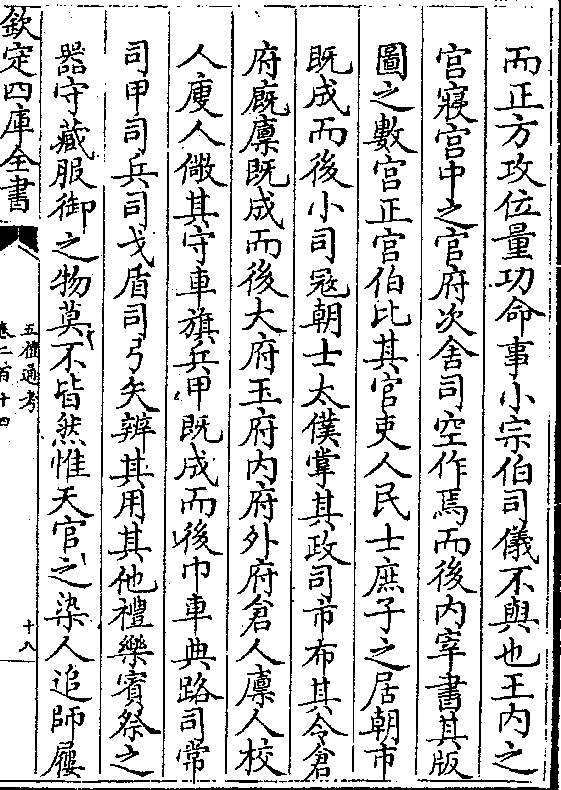 而正方攻位量功命事小宗伯司儀不與也王内之
宫寢宫中之官府次舍司空作焉而後内宰書其版
圖之數宫正宫伯比其官吏人民士庶子之居朝市
既成而後小司冦朝士太僕掌其政司市布其令倉
府廐廪既成而後大府玉府内府外府倉人廪人校
人廋人儆其守車旗兵甲既成而後巾車典路司常
司甲司兵司戈盾司弓矢辨其用其他禮樂賓祭之
器守藏服御之物莫不皆然惟天官之染人追師屨
欽定四庫全書
五禮通考
卷二百十四
十八